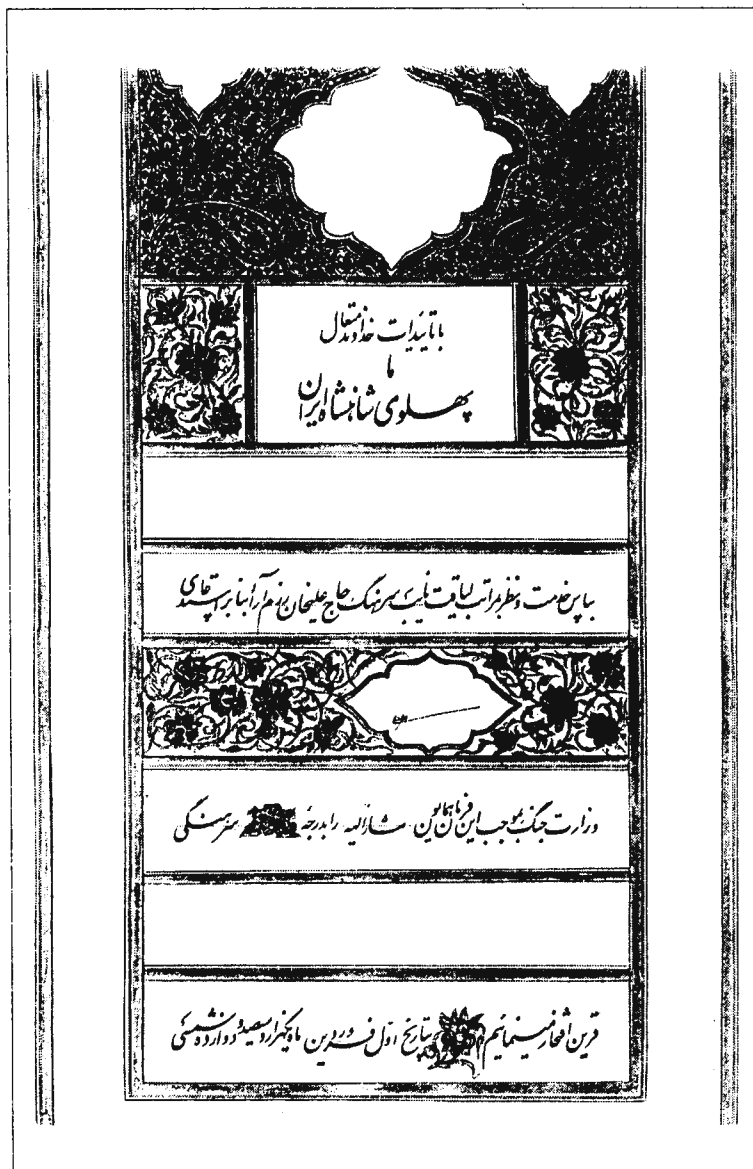 با تاییدات خداوند متعال
ما
پهلوی شاهنشاه ایران
بپاس خدمت و نظر بمراتب لیاقت نایب سرهنگ حاج علیخان رزم آرا بنا بر استدعای
وزارت جنگ بموجب این فرمان همایون مشارالیه را بدرجهٔ سرهنگی
قرین افتخار مینمائیم بتاریخ اول فروردین ماه یکهزار و سیصد و دوازده شمسی